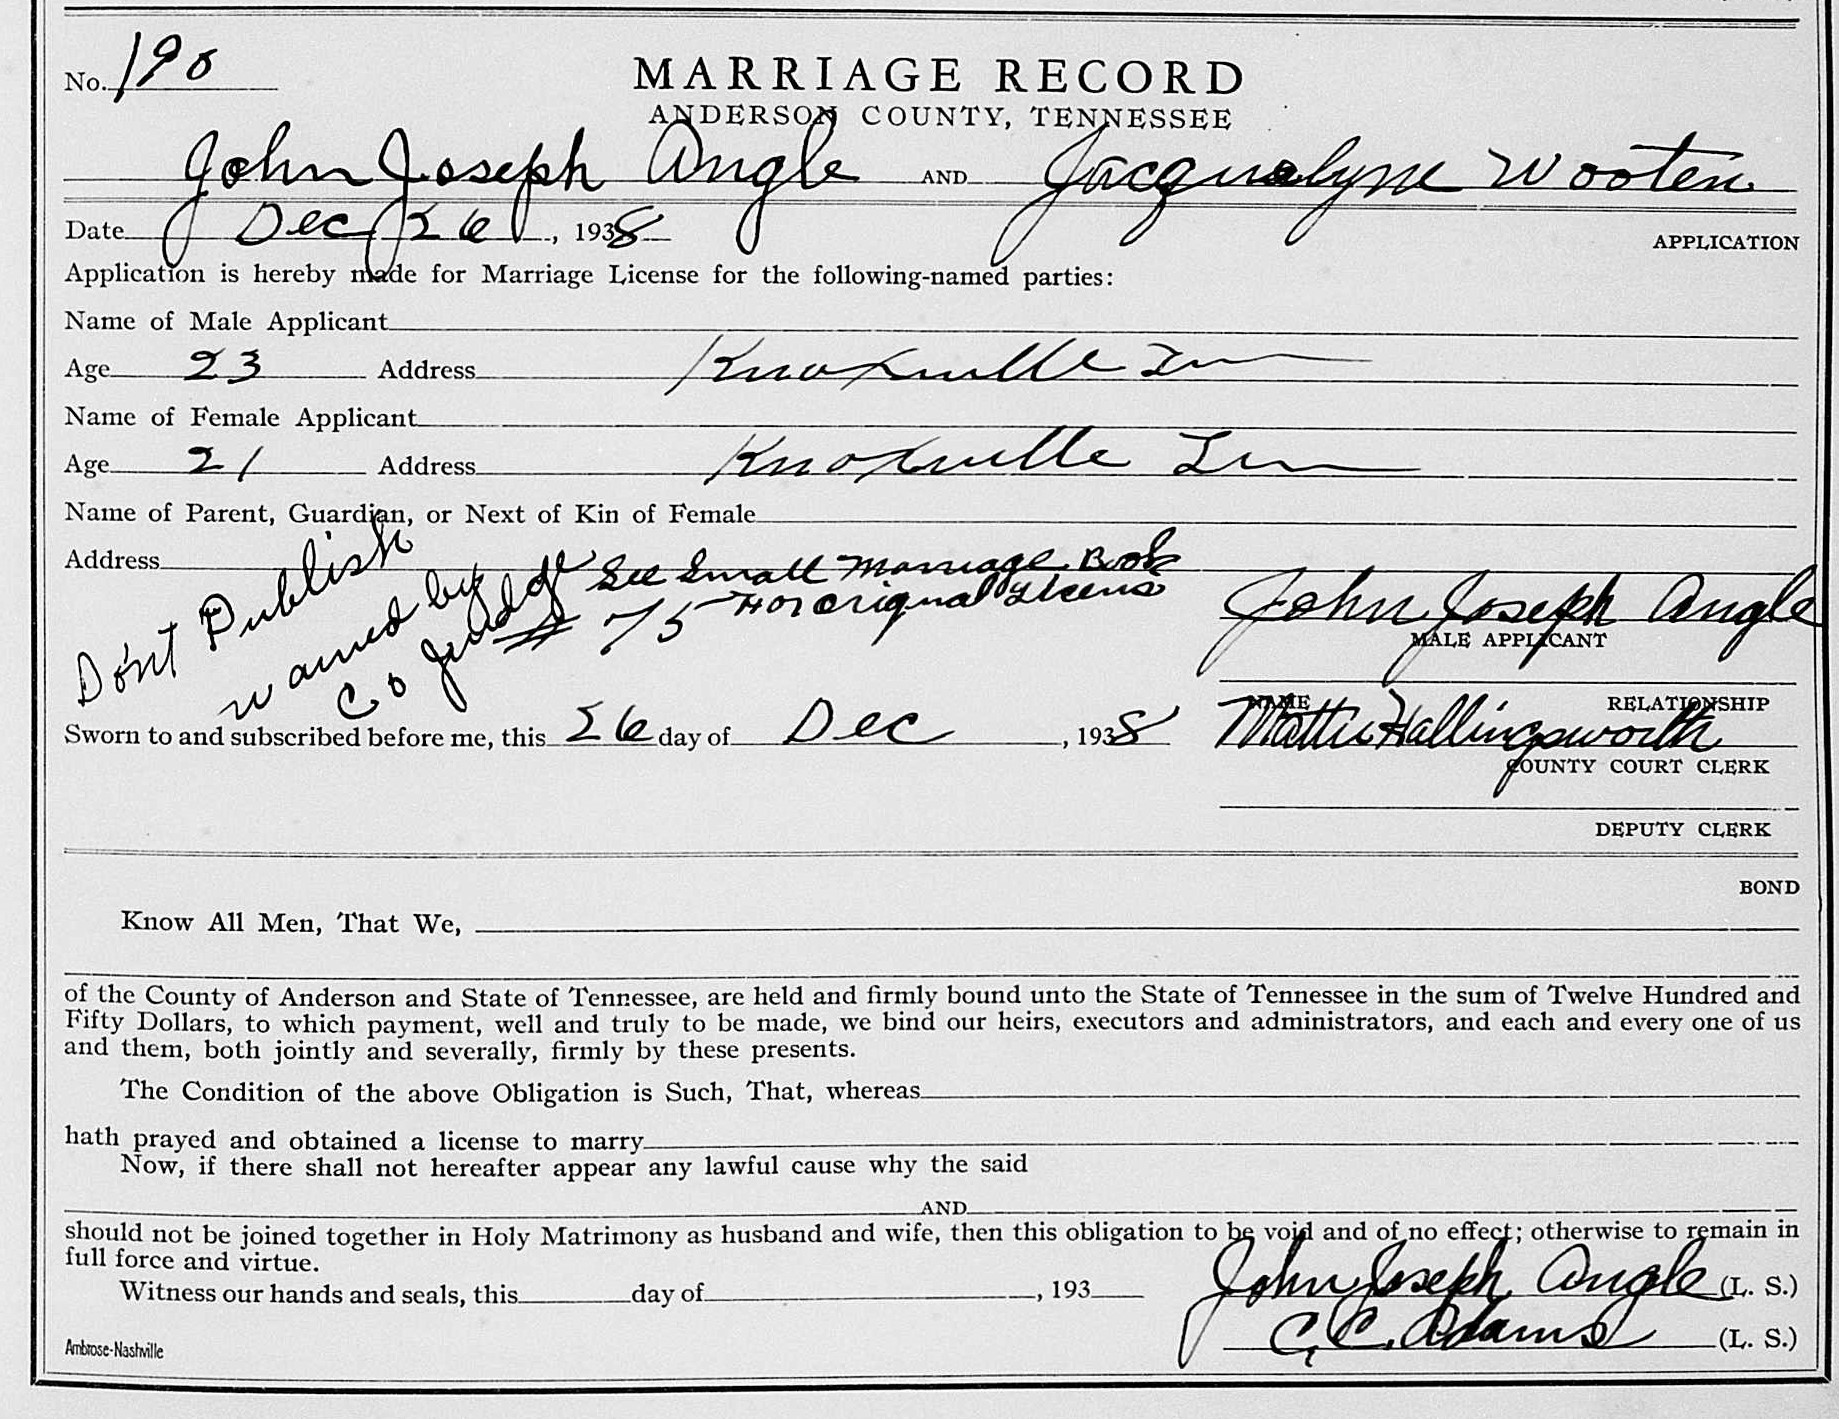 No. 190
MARRIAGE RECORD
ANDERSON COUNTY, TENNESSEE
John Joseph Angle AND Jacqualyne Wooten
Date Dec 26, 1938
APPLICATION
Application is hereby made for Marriage License for the following-named parties:
Name of Male Applicant
Age 23 Address Knoxville Tenn
Name of Female Applicant
Age 21 Address Knoxville Tenn
Name of Parent, Guardian, or Next of Kin of Female
Address
Don't Publish
waived by
Co Judge
See Small Marriage Book
# 75 For original License
John Joseph Angle
MALE APPLICANT
NAME RELATIONSHIP
Sworn to and subscribed before me, this 26 day of Dec, 1938 Mattie Hallingsworth
COUNTY COURT CLERK
DEPUTY CLERK
BOND
Know All Men, That We,
of the County of Anderson and State of Tennessee, are held and firmly bound unto the State of Tennessee in the sum of Twelve Hundred and
Fifty Dollars, to which payment, well and truly to be made, we bind our heirs, executors and administrators, and each and every one of us
and them, both jointly and severally, firmly by these presents.
The Condition of the above Obligation is Such, That, whereas
hath prayed and obtained a license to marry
Now, if there shall not hereafter appear any lawful cause why the said
AND
should not be joined together in Holy Matrimony as husband and wife, then this obligation to be void and of no effect; otherwise to remain in
full force and virtue.
Witness our hands and seals, this day of , 193 John Joseph Angle (L. S.)
C. C. Adams (L. S.)
Ambrose-Nashville